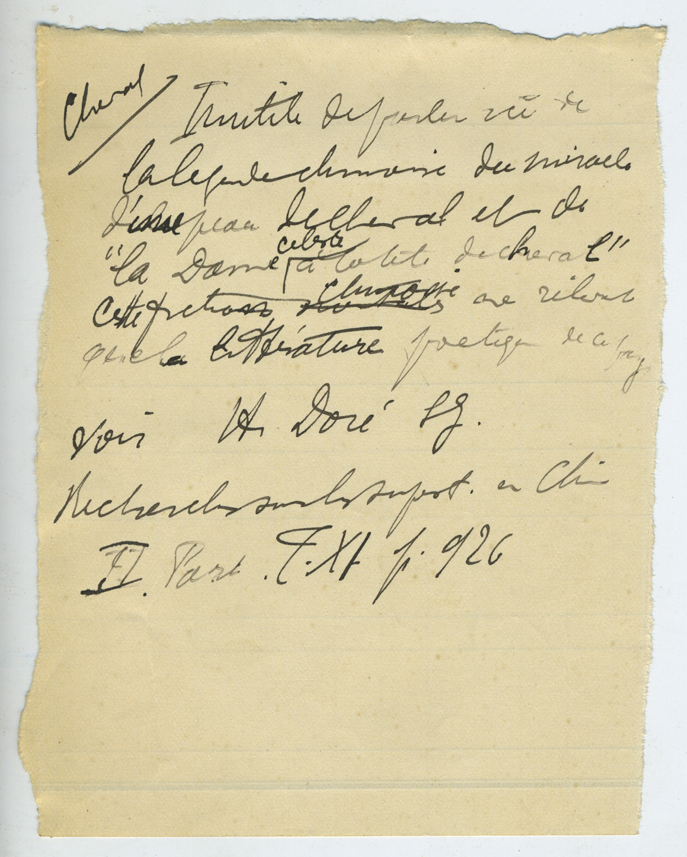 Cheval
Inutile de parler ici de
la légende chinoise du miracle
d'une peau de cheval et de
celeste
"la Dame à la tête de cheval"
chinoise
Cette fiction ne relevant
que la littérature poétique de ce pays
Voir H. Doré SJ.
Recherches sur les superst. en Chine
II. Part. T. XI p. 926